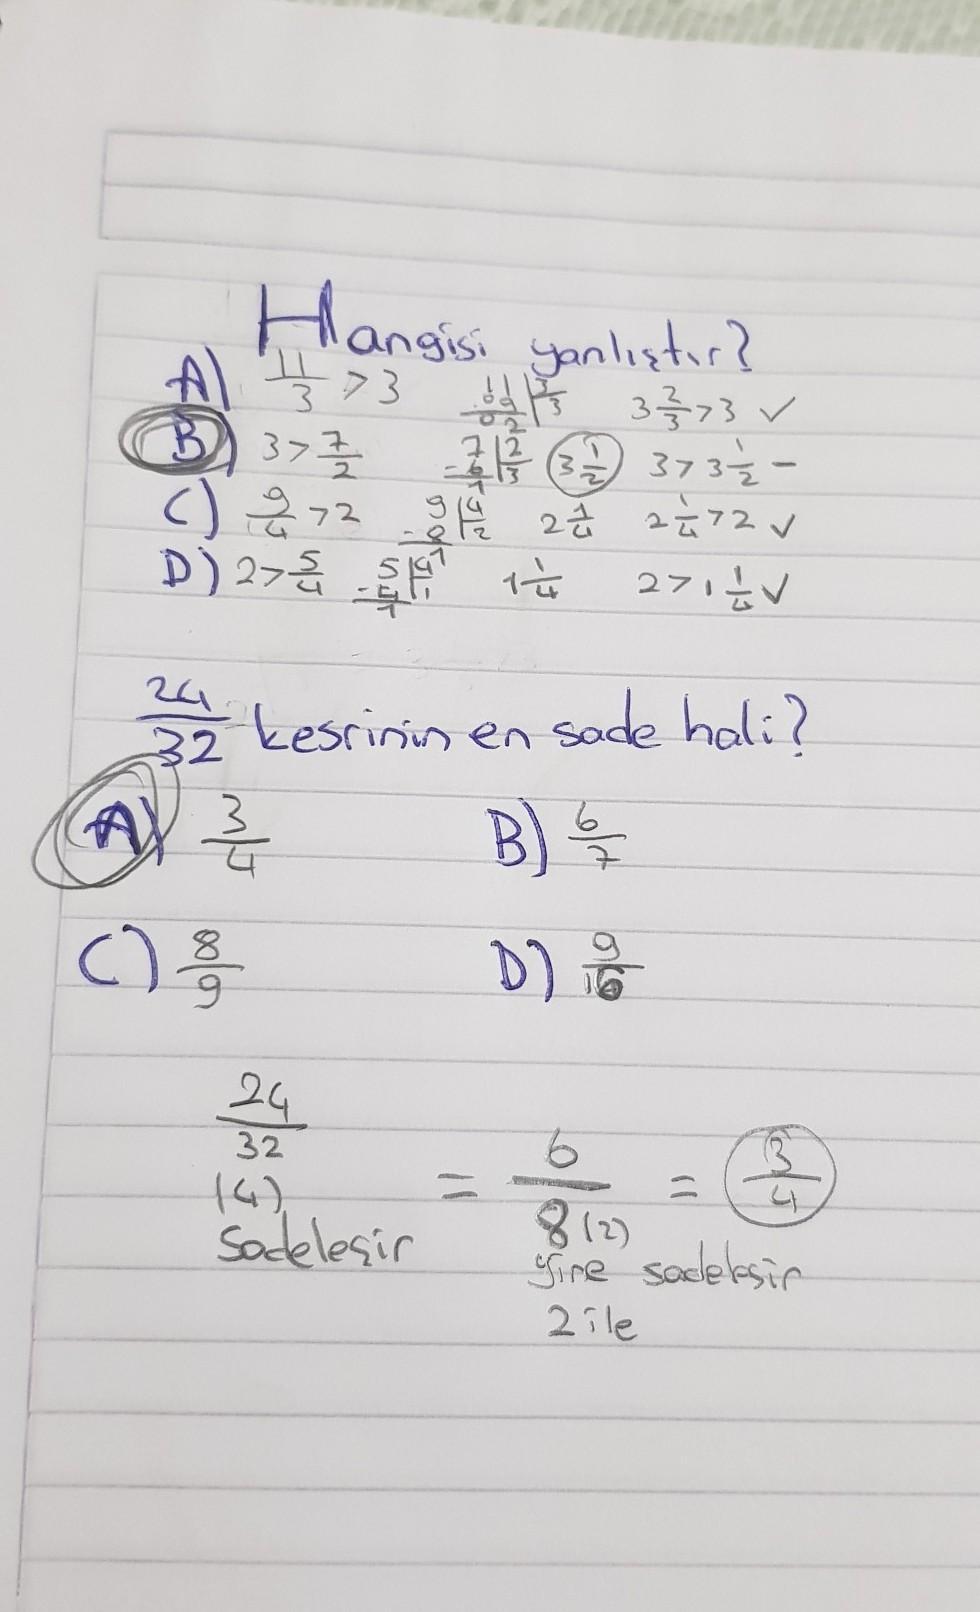 Hangisi yanlıştır?
A) 11/3 > 3 11 | 3 3 09 02 3 2/3 > 3 ✓
B) 3 > 7/2 7 | 2 3 - 6 1 3 1/2 3 > 3 1/2 -
C) 9/4 > 2 9 | 4 2 - 8 1 2 1/4 2 1/4 > 2 ✓
D) 2 > 5/4 5 | 4 1 - 4 1 1 1/4 2 > 1 1/4 ✓
24/32 kesrinin en sade hali?
A) 3/4 B) 6/7
C) 8/9 D) 9/16
24/32 (4) = 6/8 (2) = 3/4
Sadeleşir
yine sadeleşir
2 ile